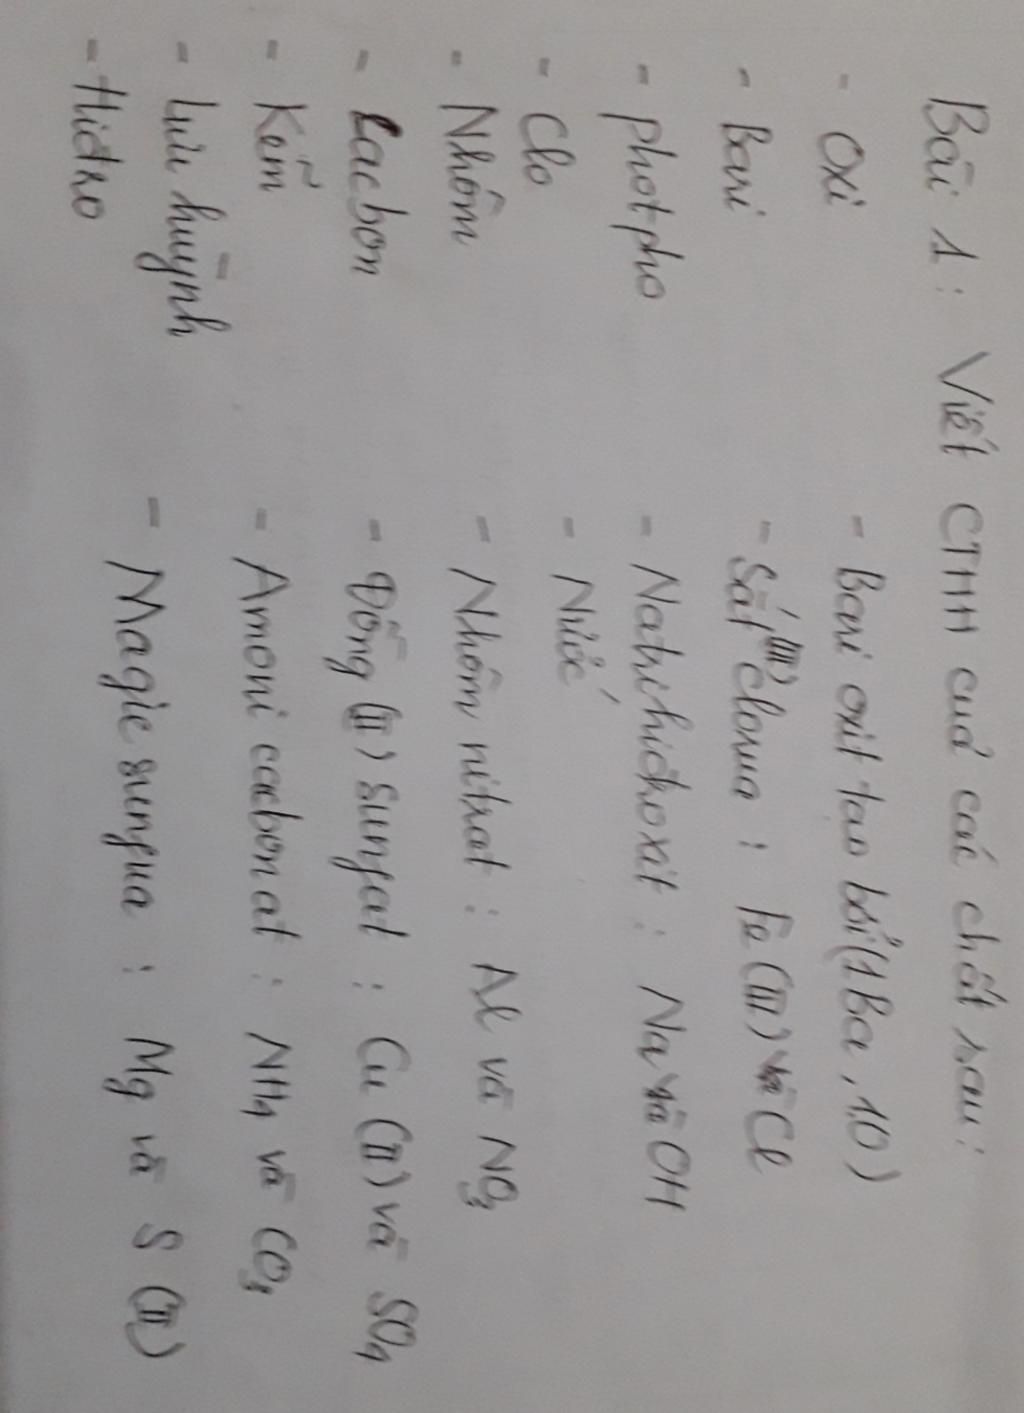 Bài 1: Viết CTHH của các chất sau:
- Oxi
- Bari
- photpho
- Clo
- Nhôm
- Cacbon
- Kẽm
- Lưu huỳnh
- Hiđro
- Bari oxit tạo bởi (1Ba, 1O)
- Sắt (III) clorua : Fe (III) và Cl
- Natrihiđroxit : Na và OH
- Nước
- Nhôm nitrat : Al và NO3
- Đồng (II) sunfat : Cu (II) và SO4
- Amoni cacbonat : NH4 và CO3
- Magie sunfua : Mg và S (II)